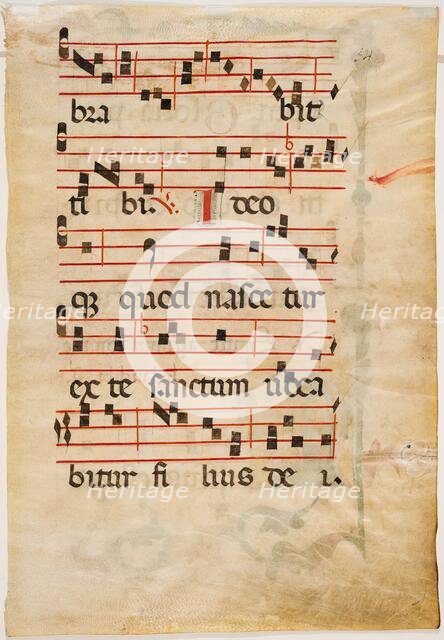 bra bit
Heritage Heritage Heritage
ti bi. Ideo
qꝫ quod nasce tur
Heritage Heritage
ex te sanctum uoca
bitur fi lius de i.
Heritage Heritage Heritage